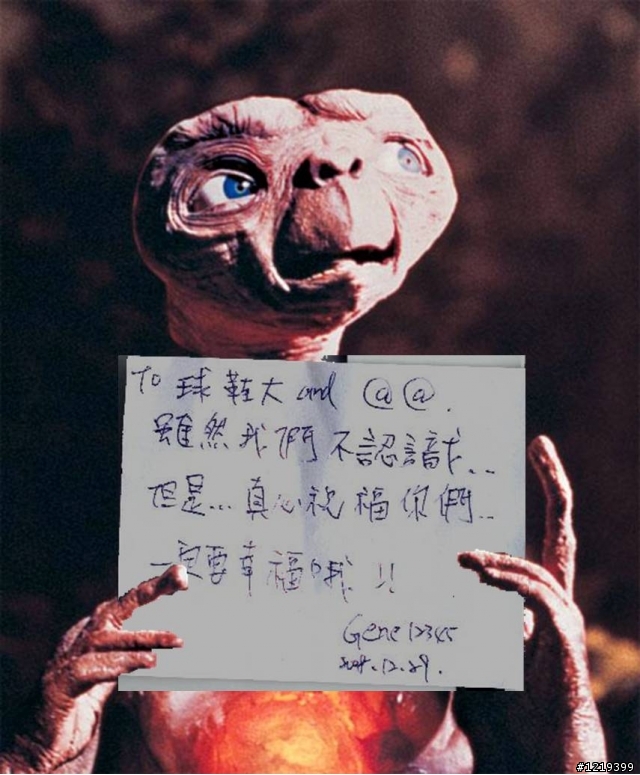 To 球鞋大 and @@.
雖然我們不認識...
但是...真心祝福你們...
一定要幸福哦!!
Gene12345
.12.29.
#1219399